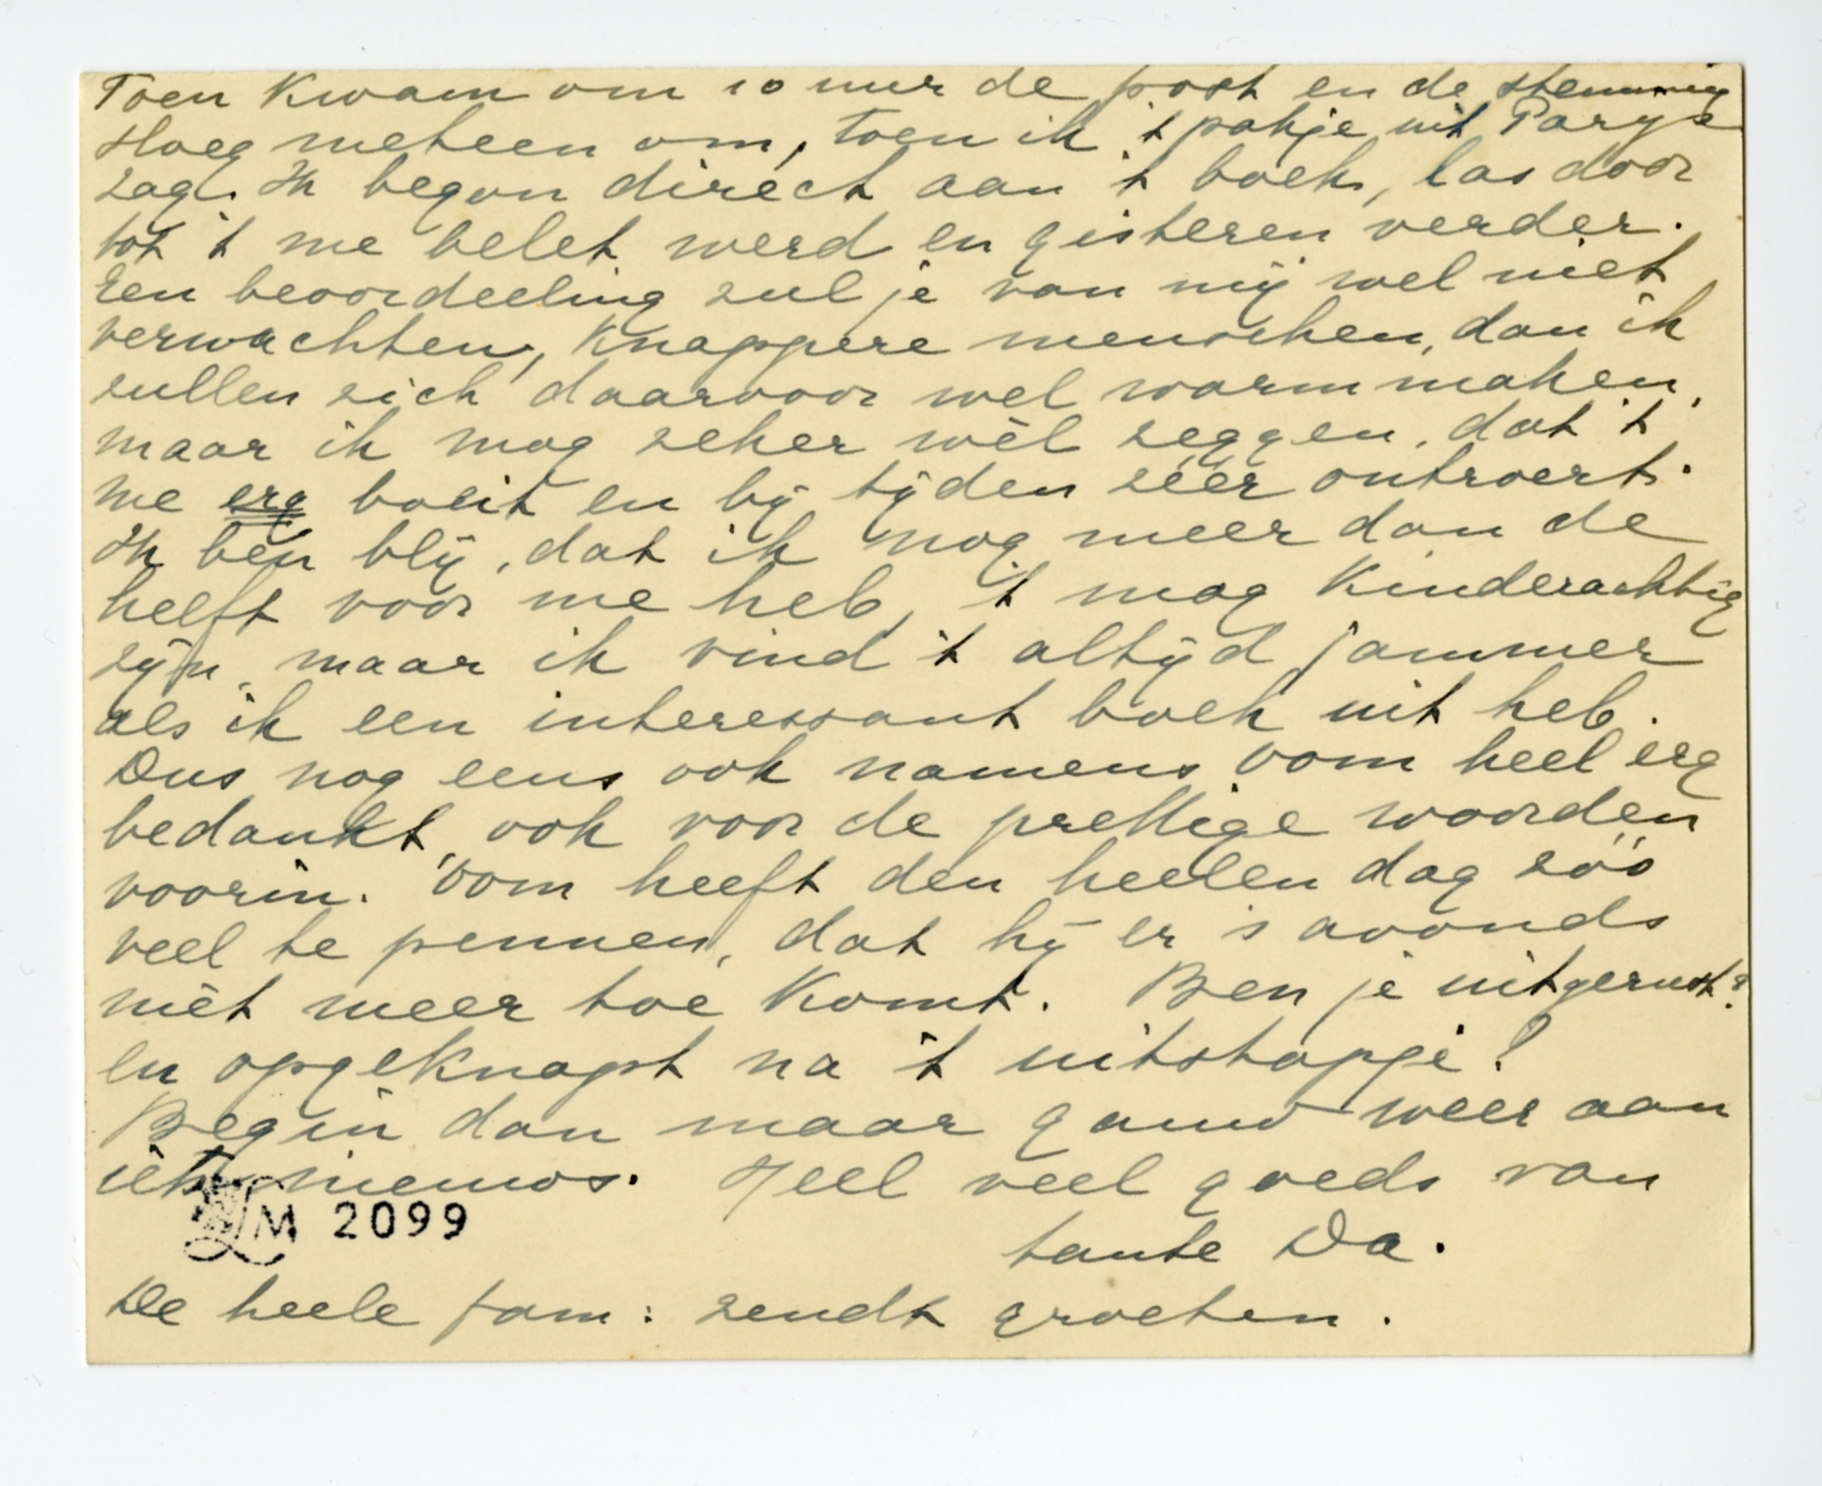 Toen kwam om 10 uur de post en de stemming
sloeg meteen om, toen ik 't pakje uit Parijs
zag. Ik begon direct aan 't boek, las door
tot 't me belet werd en gisteren verder.
Een beoordeeling zul je van mij wel niet
verwachten, knappere menschen, dan ik
zullen zich daarvoor wel warm maken,
maar ik mag zeker wèl zeggen, dat 't
me erg boeit en bij tijden zéér ontroert.
Ik ben blij, dat ik nog meer dan de
helft voor me heb, 't mag kinderachtig
zijn, maar ik vind 't altijd jammer
als ik een interessant boek uit heb.
Dus nog eens ook namens oom heel erg
bedankt, ook voor de prettige woorden
voorin. Oom heeft den heelen dag zóó
veel te pennen, dat hij er 's avonds
niet meer toe komt. Ben je uitgerust?
en opgeknapt na 't uitstapje?
Begin dan maar gauw weer aan
iets nieuws. Heel veel goeds van
LM 2099
tante Da.
De heele fam: zendt groeten.